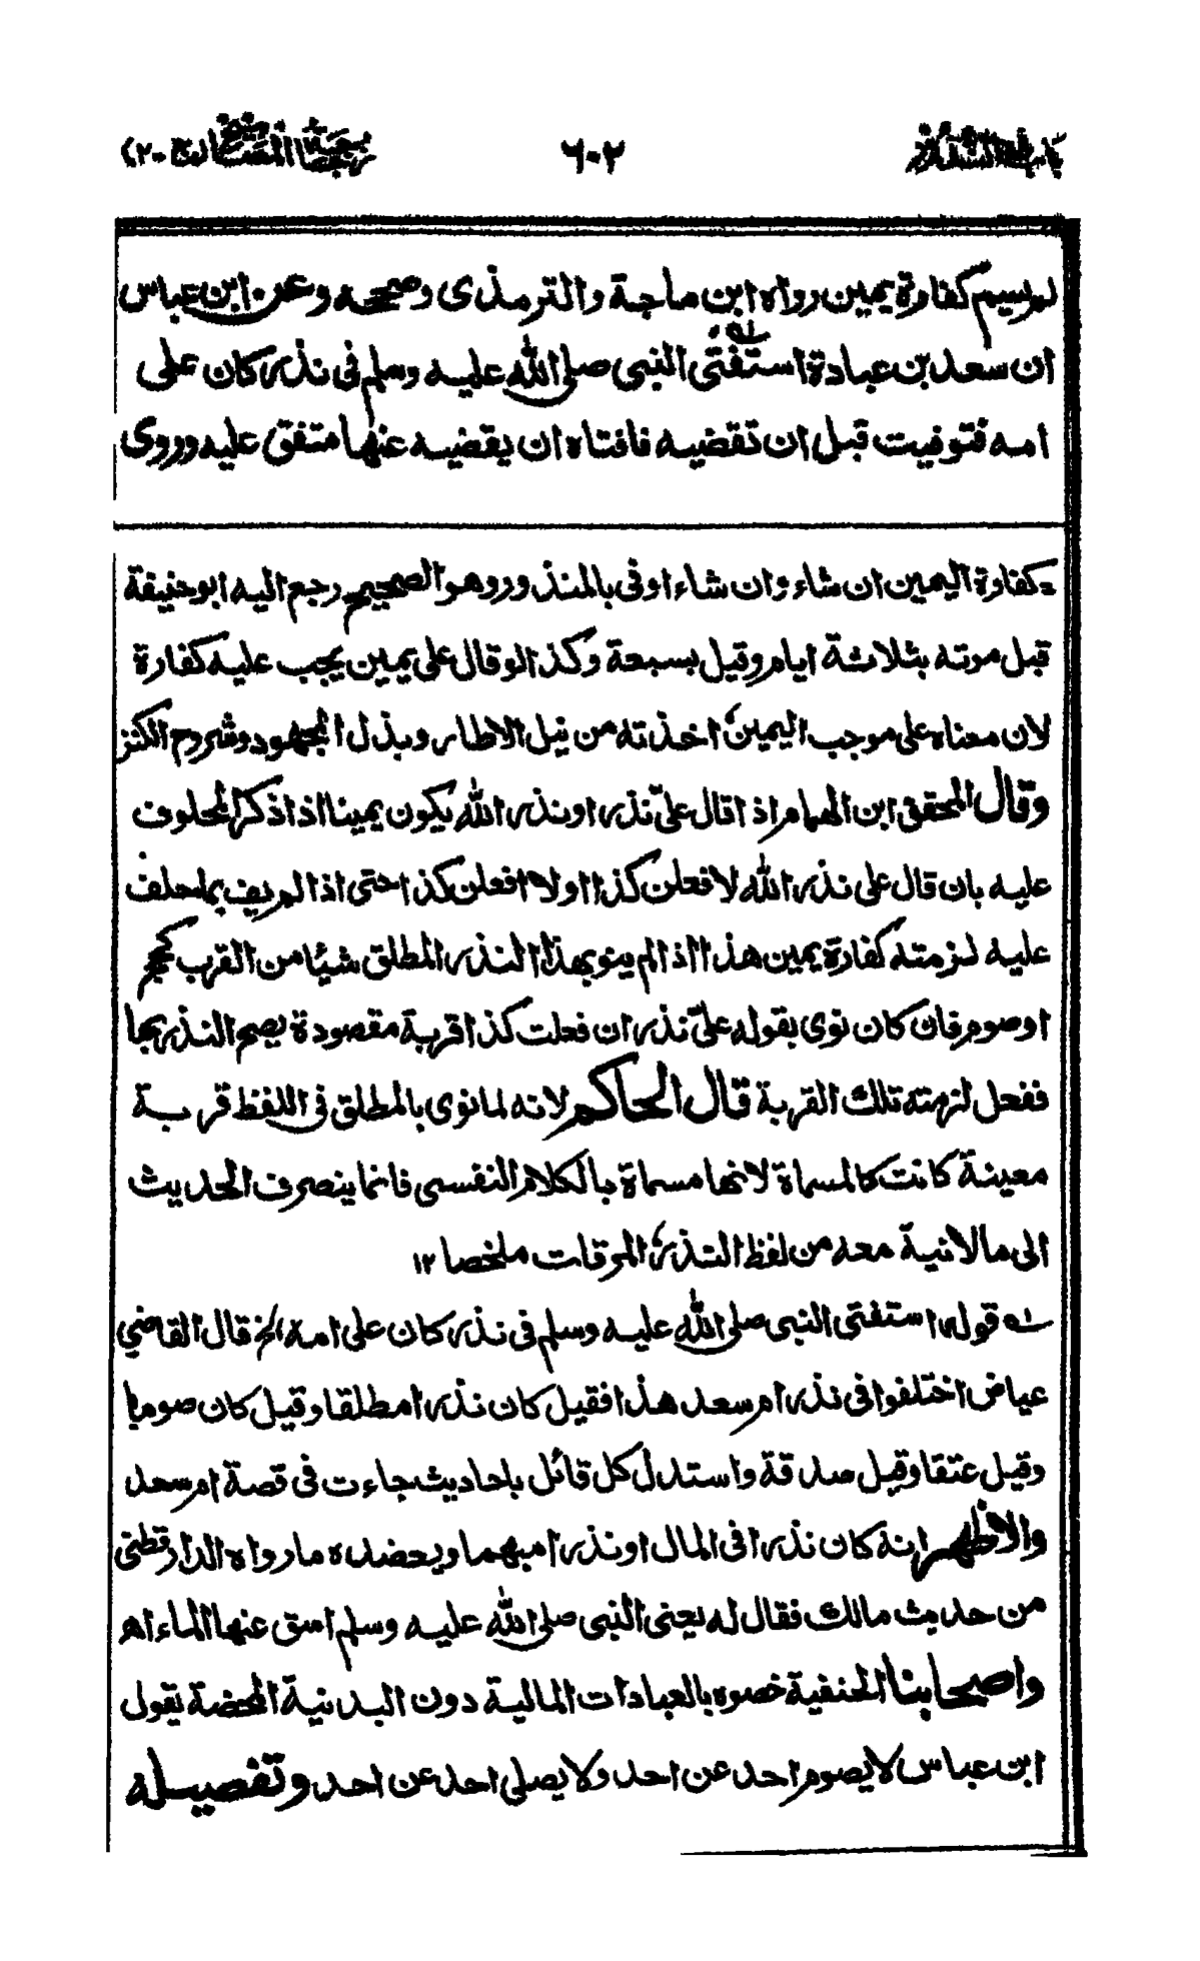 باب في النذور
٦٠٢
زجاجة المصابيح (ج-٢)
لم يسم كفارة يمين رواه ابن ماجة والترمذى وصححه وعن ابن عباس
ان سعد بن عبادة استفتى النبى صلى الله عليه وسلم فى نذر كان على
امه فتوفيت قبل ان تقضيه فافتاه ان يقضيه عنها متفق عليه وروى
=كفارة اليمين ان شاء وان شاء اوفى بالمنذور وهو الصحيح رجع اليه ابو حنيفة
قبل موته بثلاثة ايام وقيل بسبعة وكذا لو قال على يمين يجب عليه كفارة
لان معناه على موجب اليمين، اخذته من نيل الاطار وبذل المجهود وشروح الكنز
وقال المحقق ابن الهمام اذا قال علىّ نذر او نذر الله يكون يمينا اذا ذكر المحلوف
عليه بان قال على نذر الله لافعلن كذا او لا افعلن كذا حتى اذا لم يف بما حلف
عليه لزمته كفارة يمين هذا اذا لم ينو بهذا النذر المطلق شيئا من القرب كحج
او صوم فان كان نوى بقوله علىّ نذر ان فعلت كذا قربة مقصودة يصح النذر بها
ففعل لزمته تلك القربة قال الحاكم لانه لما نوى بالمطلق فى اللفظ قربة
معينة كانت كالمسماة لانها مسماة بالكلام النفسى فانما ينصرف الحديث
الى ما لا نية معه من لفظ النذر، المرقات ملخصا ١٢
له قوله استفتى النبى صلى الله عليه وسلم فى نذر كان على امه الخ قال القاضي
عياض اختلفوا فى نذر ام سعد هذا فقيل كان نذرا مطلقا وقيل كان صوما
وقيل عتقا وقيل صدقة واستدل كل قائل باحاديث جاءت فى قصة ام سعد
والاظهر انه كان نذرا فى المال او نذرا مبهما ويعضده ما رواه الدارقطنى
من حديث مالك فقال له يعنى النبى صلى الله عليه وسلم اسق عنها الماء اهـ
واصحابنا الحنفية خصوه بالعبادات المالية دون البدنية المحضة يقول
ابن عباس لا يصوم احد عن احد ولا يصلى احد عن احد وتفصيله